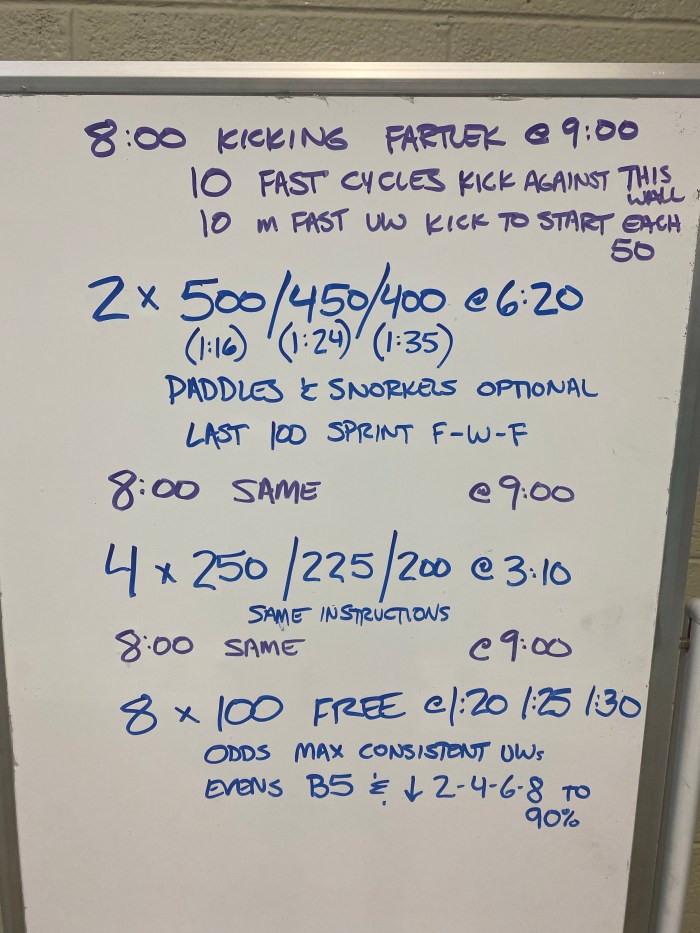 8:00 KICKING FARTLEK @ 9:00
10 FAST CYCLES KICK AGAINST THIS
WALL
10 m FAST UW KICK TO START EACH
50
2 x 500/450/400 @ 6:20
(1:16) (1:24) (1:35)
PADDLES & SNORKELS OPTIONAL
LAST 100 SPRINT F-W-F
8:00 SAME @ 9:00
4 x 250/225/200 @ 3:10
SAME INSTRUCTIONS
8:00 SAME @ 9:00
8 x 100 FREE @ 1:20 1:25 1:30
ODDS MAX CONSISTENT UWs
EVENS B5 & ↓ 2-4-6-8 TO
90%